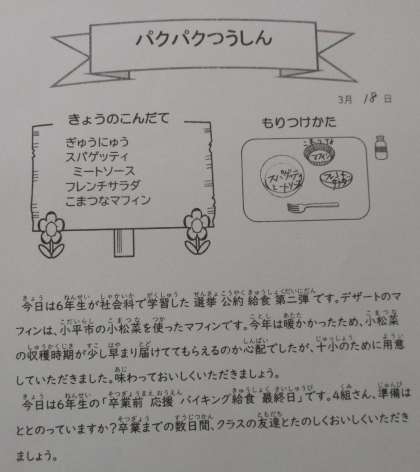 パクパクつうしん
3月 18日
きょうのこんだて
ぎゅうにゅう
スパゲッティ
ミートソース
フレンチサラダ
こまつなマフィン
もりつけかた
こまつな
マフィン
スパゲッティ
ミートソース
フレンチ
サラダ
今日は6年生が社会科で学習した 選挙 公約 給食 第二弾です。デザートのマ
フィンは、小平市の小松菜を使ったマフィンです。今年は暖かかったため、小松菜
の収穫時期が少し早まり届けてもらえるのか心配でしたが、十小のために用意
していただきました。味わっておいしくいただきましょう。
今日は6年生の「卒業前 応援 バイキング給食 最終日」です。4組さん、準備は
ととのっていますか?卒業までの数日間、クラスの友達とたのしくおいしくいただき
ましょう。